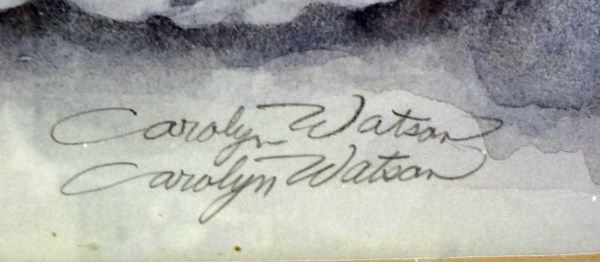 Carolyn Watson
Carolyn Watson